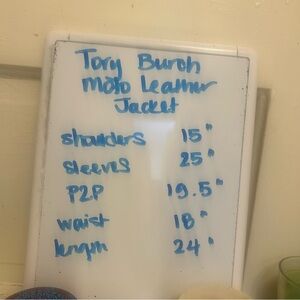 Tory Burch
Moto Leather
Jacket
shoulders 15"
sleeves 25"
P2P 19.5"
waist 18"
length 24"